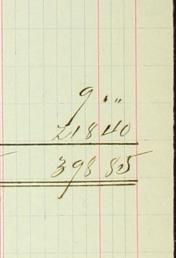 9 " "
218 40
398 85